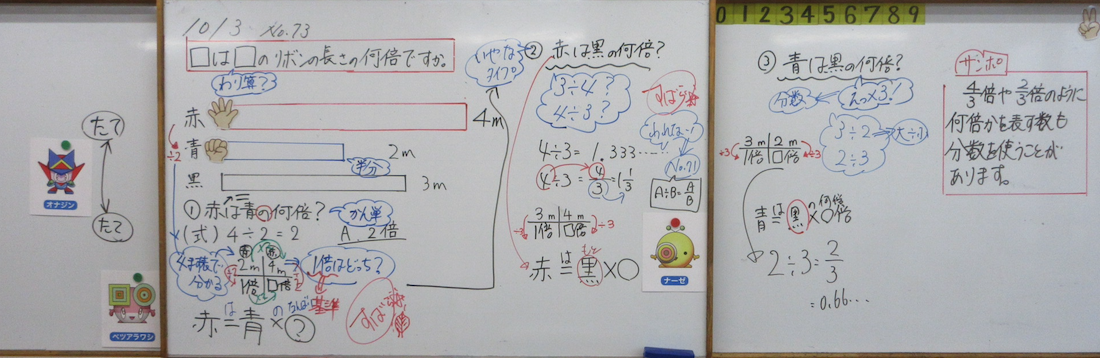 たて
たて
オナジン
ベツアラワシ
10/3 No.73
□は□のリボンの長さの何倍ですか。
わり算?
赤
4m
÷2
青
2m
半分
黒
3m
①赤は青の何倍?
かん単
(式) 4÷2=2
A. 2倍
4ます表で
分かる
2m 4m
1倍 □倍
1倍はどっち?
基準
赤は=青の×?
いやな
タイプ
②赤は黒の何倍?
3÷4?
4÷3?
4÷3=1.333……
4÷3=4/3=1 1/3
No.71
A÷B=A/B
3m 4m
1倍 □倍
÷3
÷3
赤は=黒×○
ナーゼ
0 1 2 3 4 5 6 7 8 9
③青は黒の何倍?
分数
えっ×3!
3÷2
2÷3
大÷小
3m 2m
1倍 □倍
÷3
÷3
青は=黒の×○倍
何倍
2÷3=2/3
=0.66…
サンポ
4/3倍や2/3倍のように
何倍かを表す数も
分数を使うことが
あります。